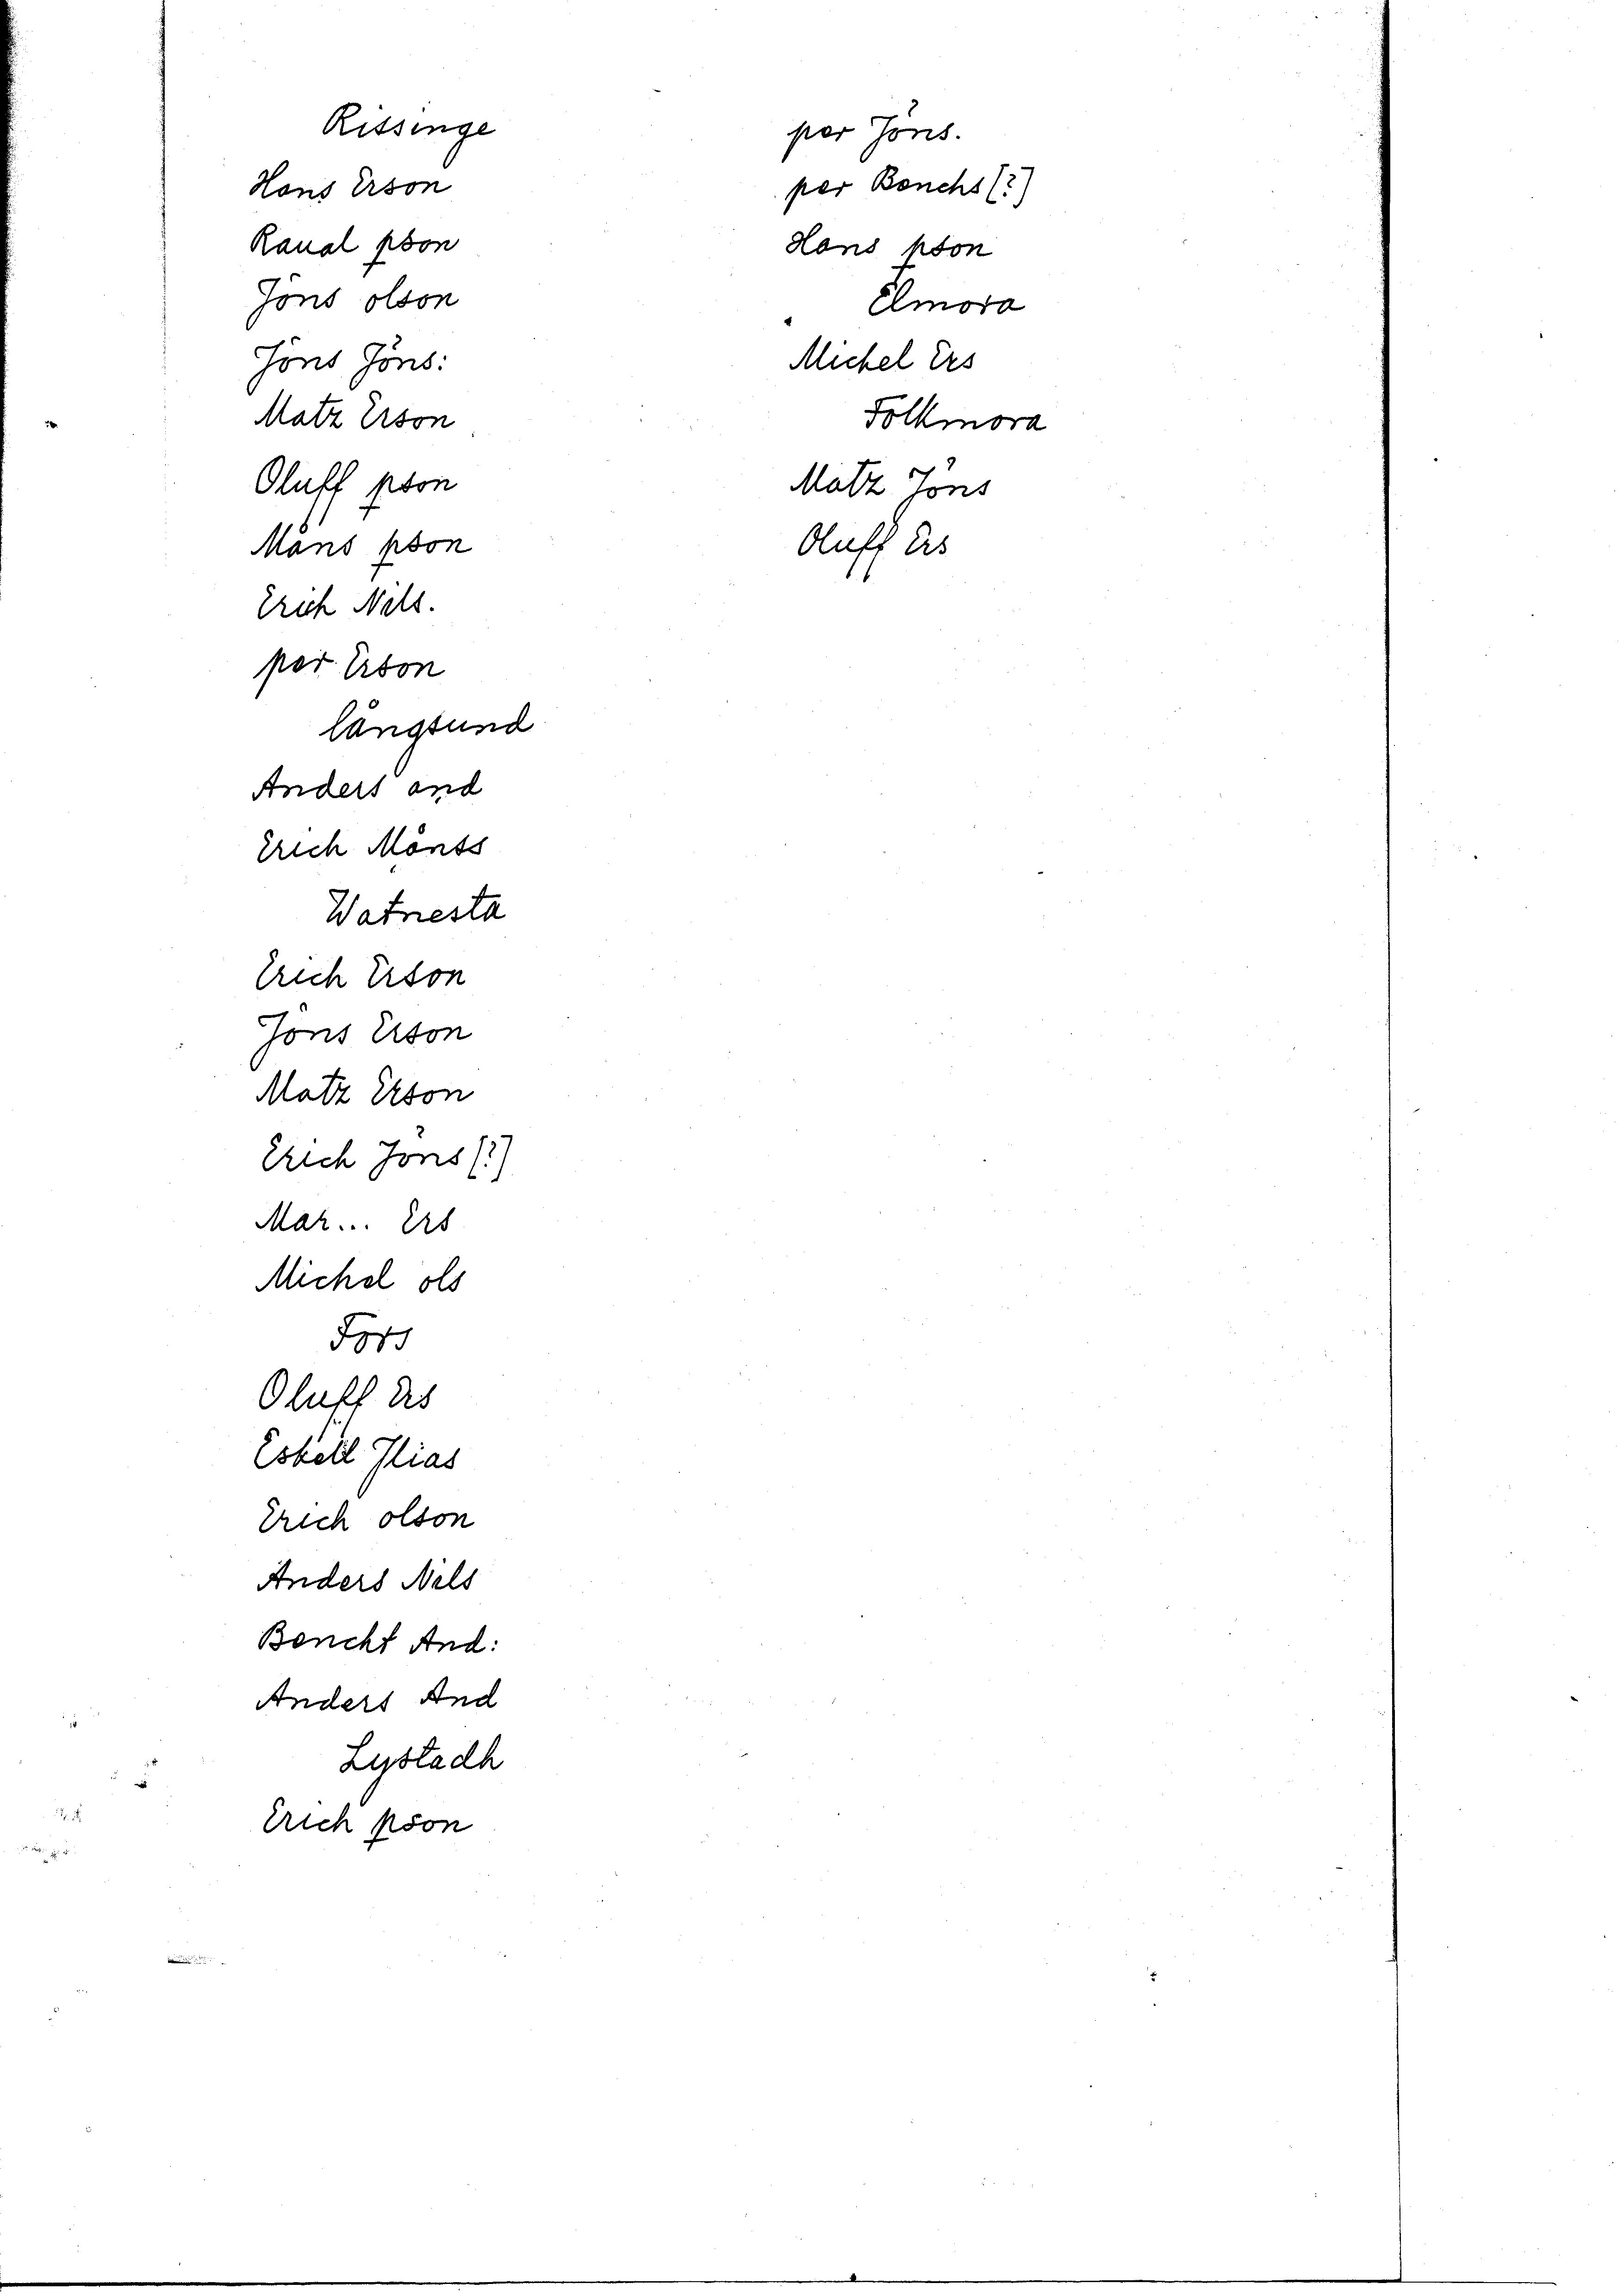 Rissinge
Hans Erson
Raual pson
Jöns olson
Jöns Jöns:
Matz Erson
Oluff pson
Måns pson
Erich Nils.
per Erson
långsund
Anders and
Erich Månss
Watnesta
Erich Erson
Jöns Erson
Matz Erson
Erich Jöns (?)
Mar... Ers
Michel ols
Fors
Oluff Ers
Eskell Ilias
Erich olson
Anders Nils
Bencht And:
Anders And
Lystadh
Erich pson
per Jöns.
per Benchs (?)
Hans pson
Elmora
Michel Ers
Folkmora
Matz Jöns
Oluff Ers